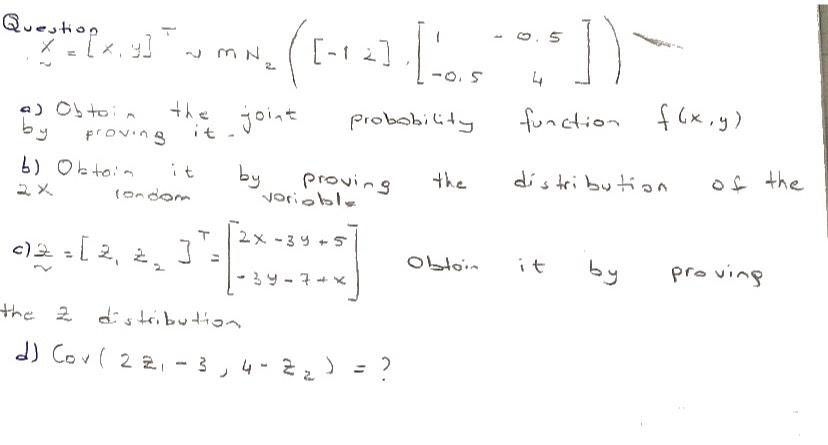 Question
X = [x, y]^T ~ mN₂ ([-1 2], [1 -0.5
-0.5 4])
a) Obtain the joint probability function f(x,y)
by proving it.
b) Obtain it by proving the distribution of the
2X random variable
c) z = [z₁ z₂]^T = [2x - 3y + 5
-3y - 7 + x] Obtain it by proving
the z distribution
d) Cov(2z₁ - 3, 4 - z₂) = ?